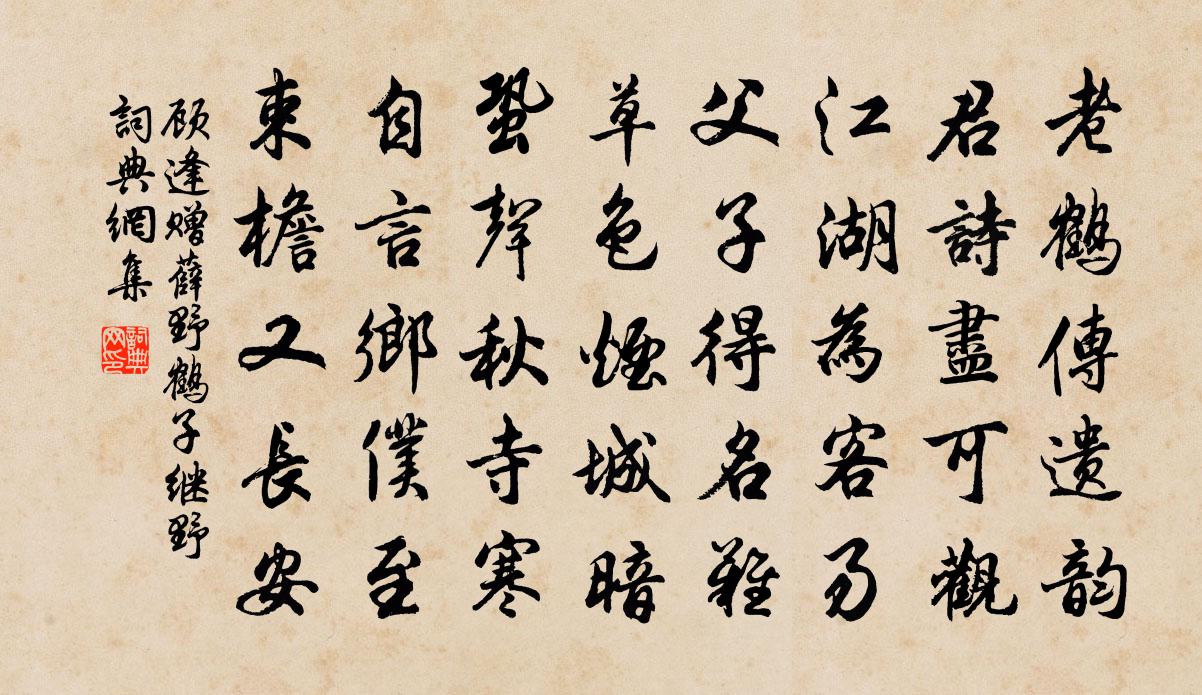 老鶴傳遺韵
君詩盡可觀
江湖為客易
父子得名難
草色煙城暗
蛩聲秋寺寒
自言鄉僕至
東檐又長安
顾逢赠薛野鶴子继野
詞典網集
詞典网印